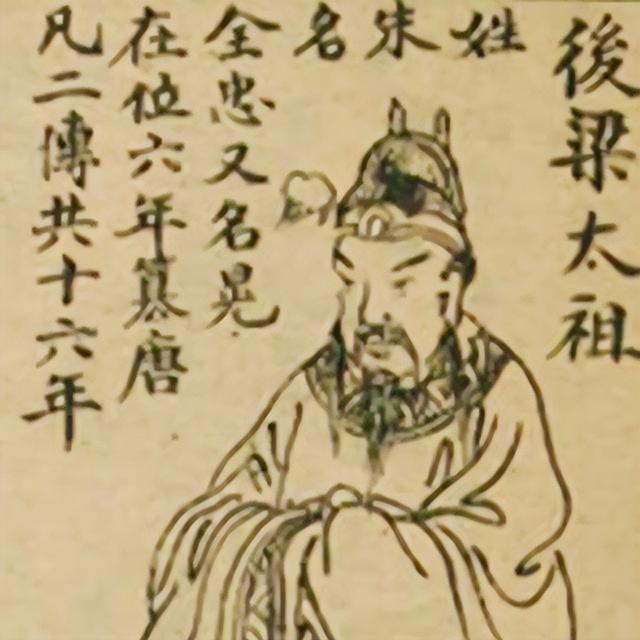 後梁太祖
姓朱名
全忠又名晃
在位六年篡唐
凡二傳共十六年